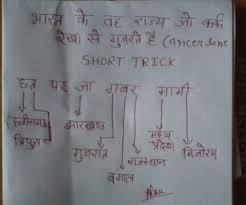 भारत के वह राज्य जो कर्क
रेखा से गुजरते है (cancer line
SHORT TRICK
छत पर जा गबर मामी
छत्तीसगढ़ झारखण्ड मध्य प्रदेश मिजोरम
त्रिपुरा गुजरात राजस्थान
बंगाल